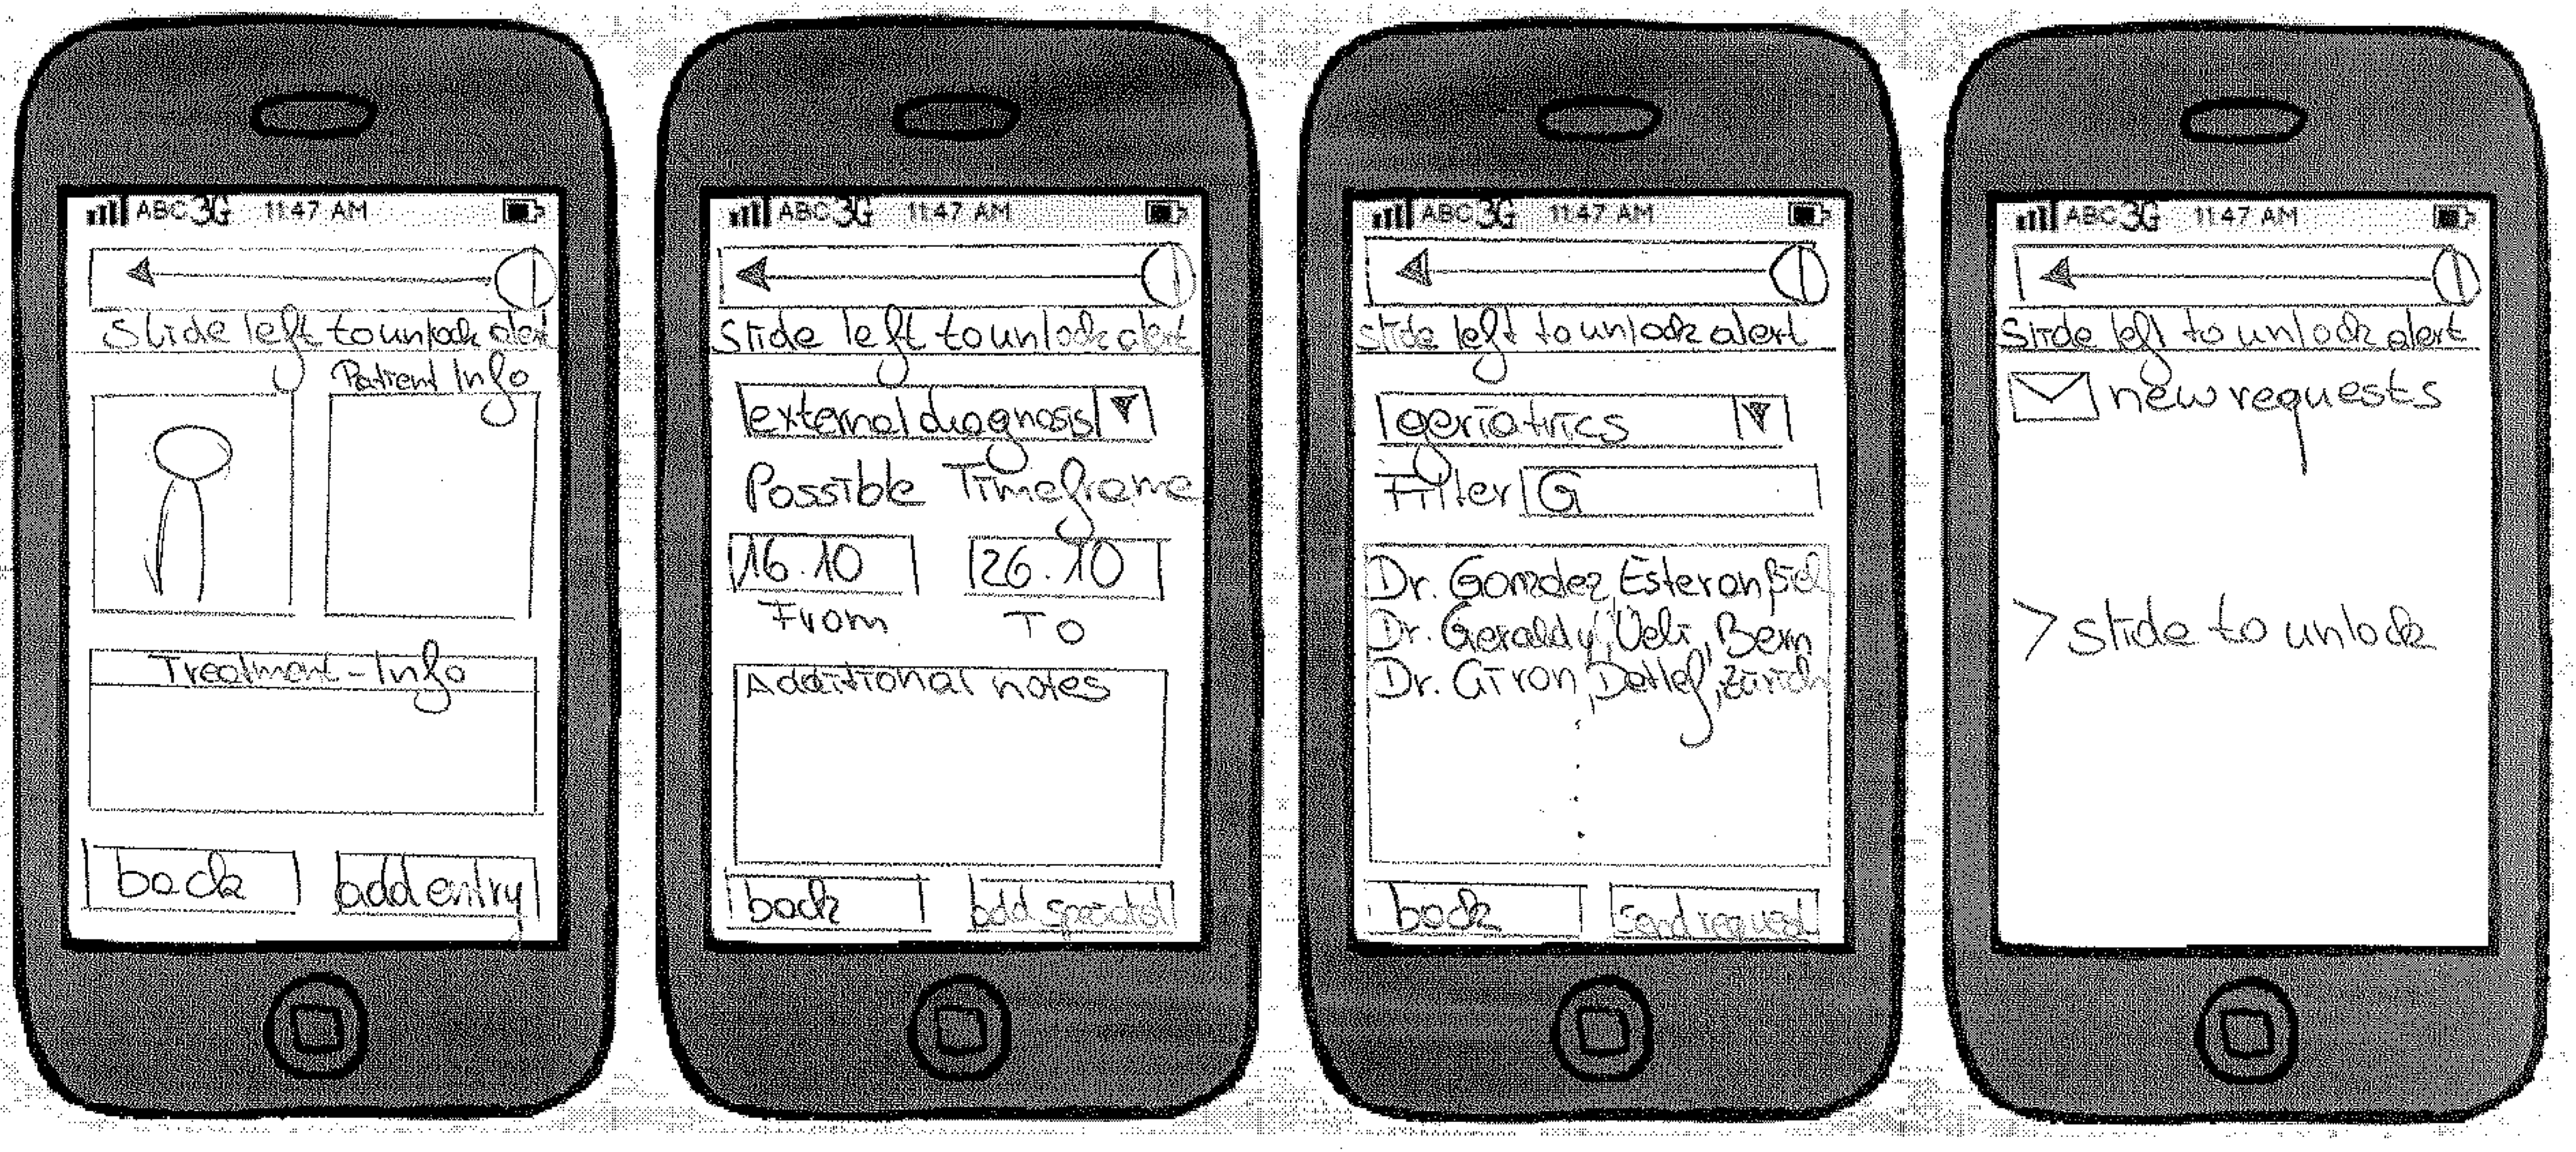 ABC 3G 11:47 AM
Slide left to unlock alert
Patient Info
Treatment-Info
back
add entry
ABC 3G 11:47 AM
Slide left to unlock alert
external diagnosis
Possible Timeframe
16.10
26.10
From
To
Additional notes
back
add
ABC 3G 11:47 AM
Slide left to unlock alert
geriatrics
Filter G
Dr. Esteron, Biel
Dr. Geraldy, Ueli, Bern
Dr. Giron, Detlef, Zürich
back
Send request
ABC 3G 11:47 AM
Slide left to unlock alert
new requests
> slide to unlock